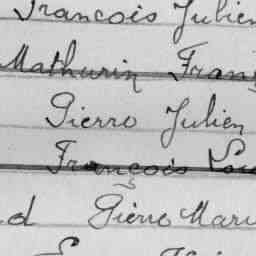 Francois Julien
Mathurin Fran
Pierre Julien
François Lou
d Pierre Marie